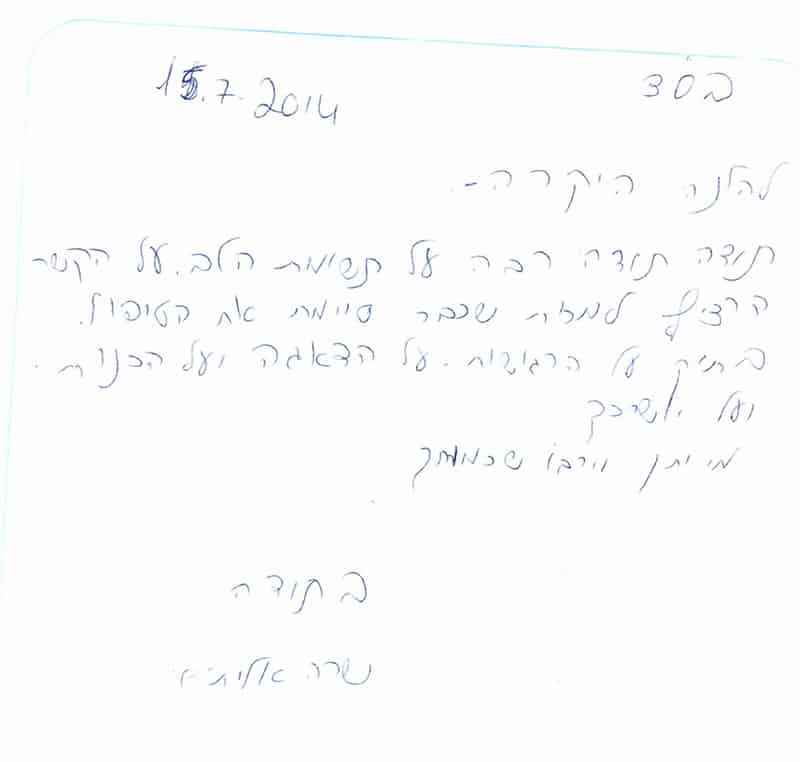 בס"ד 15.7.2014
להלנה היקרה -
תודה תודה רבה על תשומת הלב. על הקשר
הרציף למרות שכבר סיימת את הטיפול.
בתיק על הרגישות. על הדאגה ועל הכנות.
ועל יושרך
מי יתן וירבו שכמותך
בתודה
שרה